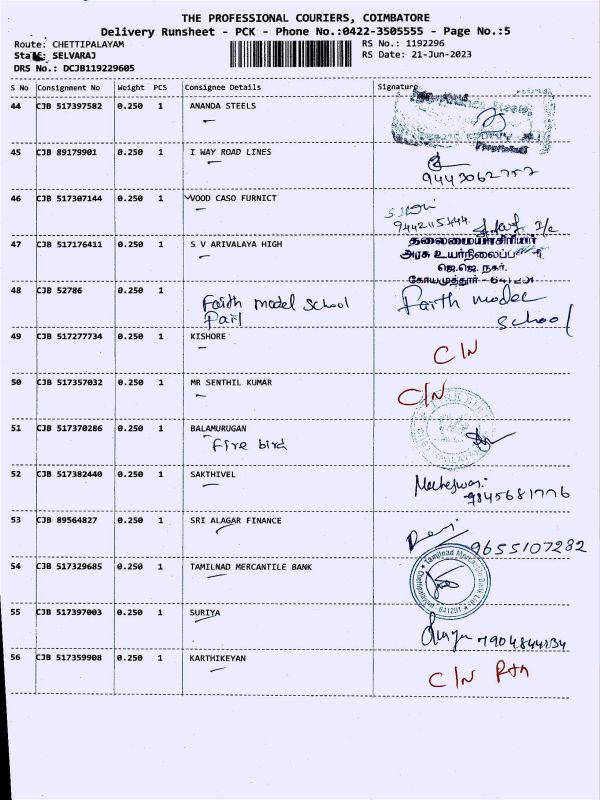 THE PROFESSIONAL COURIERS, COIMBATORE
Delivery Runsheet - PCK - Phone No.:0422-3505555 - Page No.:5
Route: CHETTIPALAYAM
RS No.: 1192296
SELVARAJ
RS Date: 21-Jun-2023
DRS No.: DCJB119229605
S No Consignment No Weight PCS Consignee Details Signature
44 CJB 517397582 0.250 1 ANANDA STEELS
45 CJB 89179901 0.250 1 I WAY ROAD LINES
9443062757
46 CJB 517307144 0.250 1 WOOD CASO FURNICT
47 CJB 517176411 0.250 1 S V ARIVALAYA HIGH
தலைமையாசிரியர்
அரசு உயர்நிலைப்
ஜெ.ஜெ. நகர்.
கோயமுத்தூர்
48 CJB 52786 0.250 1 Faith model School Faith model School
49 CJB 517277734 0.250 1 KISHORE C/N
50 CJB 517357032 0.250 1 MR SENTHIL KUMAR C/N
51 CJB 517370286 0.250 1 BALAMURUGAN
Fire bird
52 CJB 517382440 0.250 1 SAKTHIVEL Maheswari
9845681776
53 CJB 89564827 0.250 1 SRI ALAGAR FINANCE
9655107282
54 CJB 517329685 0.250 1 TAMILNAD MERCANTILE BANK
Tamilnad Mercantile Bank Ltd.
641201
55 CJB 517397003 0.250 1 SURIYA
7904844134
56 CJB 517359908 0.250 1 KARTHIKEYAN C/N